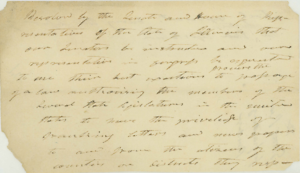 Resolved by the Senate and House of Rep-
resentatives of the State of Illinois that
our Senators be instructed and our
representatives in congress be requested
to use their best exertions to procure passage
of a law authorizing the members of the
several State Legislatures in the United
States to have the priviledge of
receiving letters and news papers
to and from the citizens of the
counties or districts they